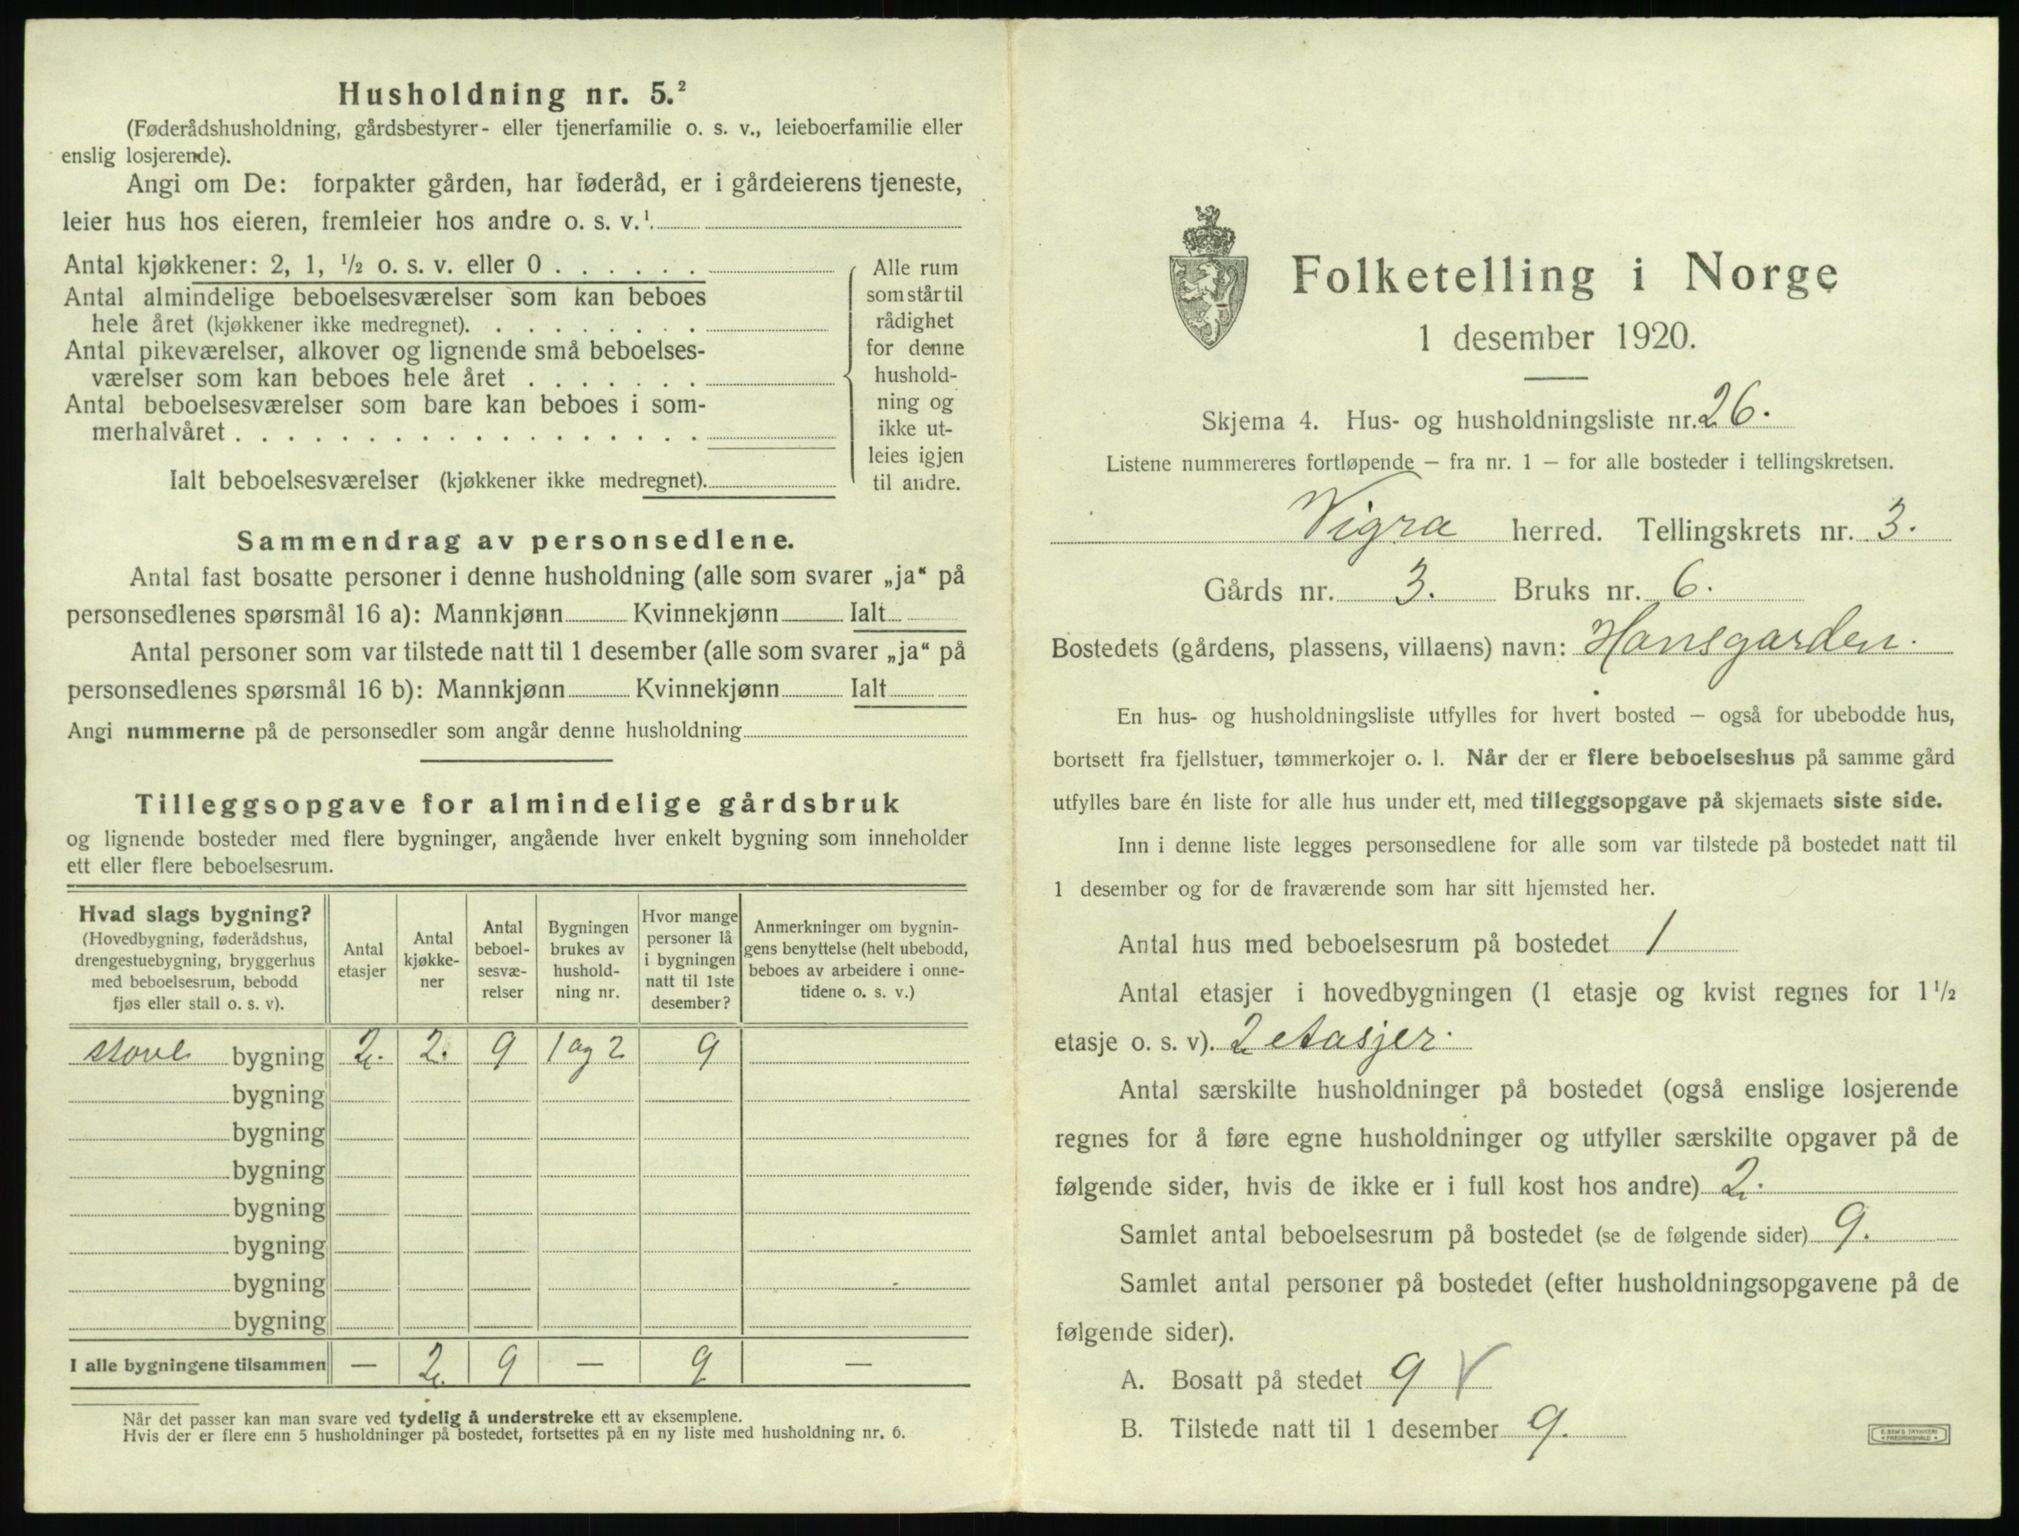 Husholdning nr. 5.²
(Føderådshusholdning, gårdsbestyrer- eller tjenerfamilie o. s. v., leieboerfamilie eller
enslig losjerende).
Angi om De: forpakter gården, har føderåd, er i gårdeierens tjeneste,
leier hus hos eieren, fremleier hos andre o. s. v.¹
Antal kjøkkener: 2, 1, ½ o. s. v. eller 0
Antal almindelige beboelsesværelser som kan beboes
hele året (kjøkkener ikke medregnet).
Antal pikeværelser, alkover og lignende små beboelses-
værelser som kan beboes hele året
Antal beboelsesværelser som bare kan beboes i som-
merhalvåret
Ialt beboelsesværelser (kjøkkener ikke medregnet).
Alle rum
som står til
rådighet
for denne
hushold-
ning og
ikke ut-
leies igjen
til andre.
Sammendrag av personsedlene.
Antal fast bosatte personer i denne husholdning (alle som svarer „ja“ på
personsedlenes spørsmål 16 a): Mannkjønn Kvinnekjønn Ialt
Antal personer som var tilstede natt til 1 desember (alle som svarer „ja“ på
personsedlenes spørsmål 16 b): Mannkjønn Kvinnekjønn Ialt
Angi nummerne på de personsedler som angår denne husholdning
Tilleggsopgave for almindelige gårdsbruk
og lignende bosteder med flere bygninger, angående hver enkelt bygning som inneholder
ett eller flere beboelsesrum.
Hvad slags bygning?
(Hovedbygning, føderådshus,
drengestuebygning, bryggerhus
med beboelsesrum, bebodd
fjøs eller stall o. s. v).
Antal
etasjer
Antal
kjøkke-
ner
Antal
beboel-
sesvæ-
relser
Bygningen
brukes av
hushold-
ning nr.
Hvor mange
personer lå
i bygningen
natt til 1ste
desember?
Anmerkninger om bygnin-
gens benyttelse (helt ubebodd,
beboes av arbeidere i onne-
tidene o. s. v.)
stove bygning 2. 2. 9 1 og 2 9
bygning
bygning
bygning
bygning
bygning
bygning
bygning
I alle bygningene tilsammen — 2. 9 — 9 —
Når det passer kan man svare ved tydelig å understreke ett av eksemplene.
Hvis der er flere enn 5 husholdninger på bostedet, fortsettes på en ny liste med husholdning nr. 6.
Folketelling i Norge
1 desember 1920.
Skjema 4. Hus- og husholdningsliste nr. 26.
Listene nummereres fortløpende — fra nr. 1 — for alle bosteder i tellingskretsen.
Vigra herred. Tellingskrets nr. 3.
Gårds nr. 3. Bruks nr. 6.
Bostedets (gårdens, plassens, villaens) navn: Hansgarden.
En hus- og husholdningsliste utfylles for hvert bosted — også for ubebodde hus,
bortsett fra fjellstuer, tømmerkojer o. l. Når der er flere beboelseshus på samme gård
utfylles bare én liste for alle hus under ett, med tilleggsopgave på skjemaets siste side.
Inn i denne liste legges personsedlene for alle som var tilstede på bostedet natt til
1 desember og for de fraværende som har sitt hjemsted her.
Antal hus med beboelsesrum på bostedet 1
Antal etasjer i hovedbygningen (1 etasje og kvist regnes for 1½
etasje o. s. v). 2 etasjer.
Antal særskilte husholdninger på bostedet (også enslige losjerende
regnes for å føre egne husholdninger og utfyller særskilte opgaver på de
følgende sider, hvis de ikke er i full kost hos andre) 2.
Samlet antal beboelsesrum på bostedet (se de følgende sider) 9.
Samlet antal personer på bostedet (efter husholdningsopgavene på de
følgende sider).
A. Bosatt på stedet 9 V
B. Tilstede natt til 1 desember 9.
E. SEM'S TRYKKERI
FREDRIKSHALD